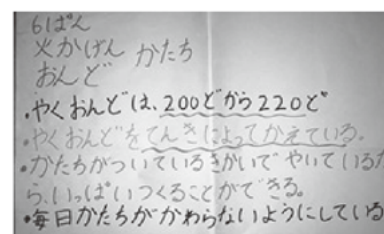 6ぱん
火かげん かたち
おんど
・やくおんどは、200どから220ど
・やくおんどをてんきによってかえている。
・かたちがついているきかいでやいているか
ら、いっぱいつくることができる。
・毎日かたちがかわらないようにしている